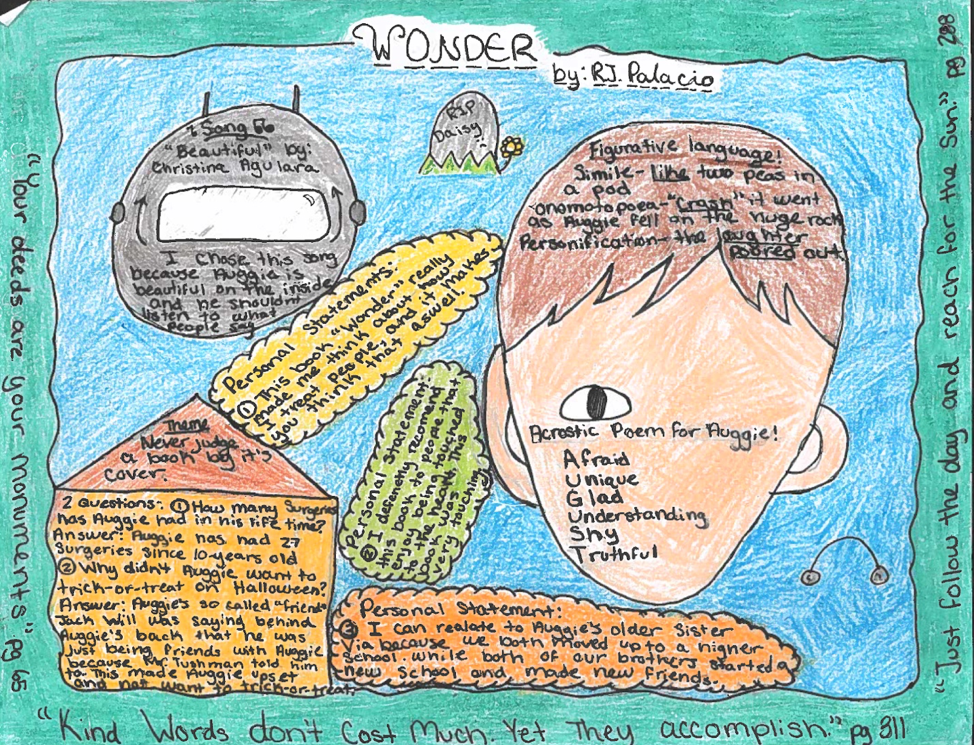 WONDER
by: R.J. Palacio
"Your deeds are your monuments" pg 65
"Just follow the day and reach for the Sun." pg 288
Song
"Beautiful" by:
Christina Agulara
I Chose this song
because Auggie is
beautiful on the inside
and he shouldnt
listen to what
people say
RIP
Daisy
Figurative language!
Simile- like two peas in
a pod
onomotopoea- "Crash" it went
as Auggie fell on the huge rock
Personification- the laughter
poored out.
Personal Statements:
① This book "Wonder" really
made me think about how
I treat people, and it makes
you think that aswell.
Personal Statement:
② I defenetly recomend
this book to people that
enjoy being touched
to the heart. This
book was very
touching
Acrostic Poem for Auggie!
Afraid
Unique
Glad
Understanding
Shy
Truthful
Theme
Never judge
a book by it's
cover.
2 Questions: ① How many Surgeries
has Auggie had in his life time?
Answer: Auggie has had 27
Surgeries since 10-years old
② Why didn't Auggie want to
trick-or-treat on Halloween?
Answer: Auggie's so called "friend"
Jack Will was saying behind
Auggie's back that he was
just being friends with Auggie
because Mr. Tushman told him
to. This made Auggie upset
and not want to trick-or-treat.
Personal Statement:
③ I can realate to Auggie's older Sister
Via because we both moved up to a higher
School. while both of our brothers started a
new School and made new friends.
"Kind Words don't Cost Much. Yet They accomplish." pg 311